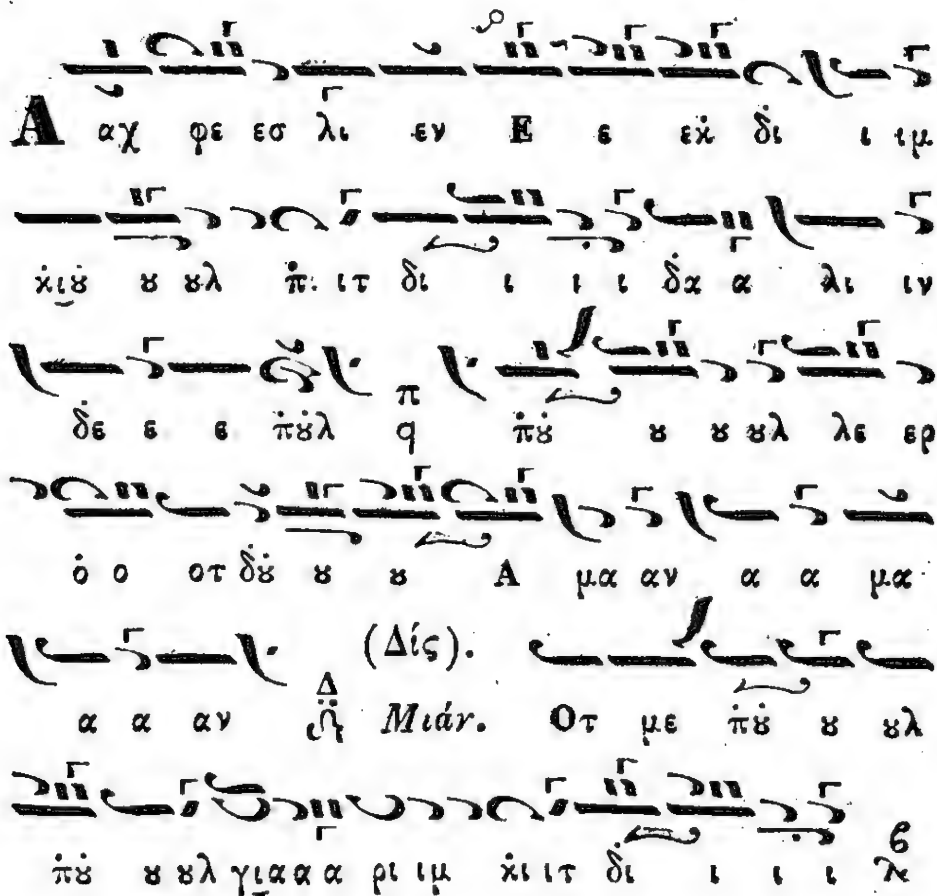 Α αχ φε εσ λι εν Ε ε εκ̇ δ̇ι ι ιμ
κ̇ιȣ̇ ȣ ȣλ π̇ι ιτ δι ι ι ι δ̇α α λι ιν
δ̇ε ε ε π̇ȣ̇λ π q π̇ȣ̇ ȣ ȣ ȣλ λε ερ
ȯ ο οτ δ̇ȣ̇ ȣ ȣ Α μα αν α α μα
α α αν Δ (Δίς). Μιάν. Οτ με π̇ȣ̇ ȣ ȣλ
π̇ȣ̇ ȣ ȣλ για α α ρι ιμ κ̇ι ιτ δ̇ι ι ι ι